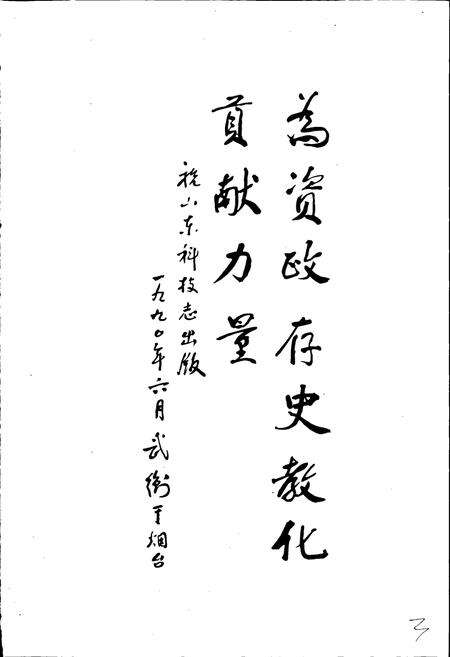 为资政存史教化
贡献力量
祝山东科技志出版
一九九〇年六月武衡于烟台
3